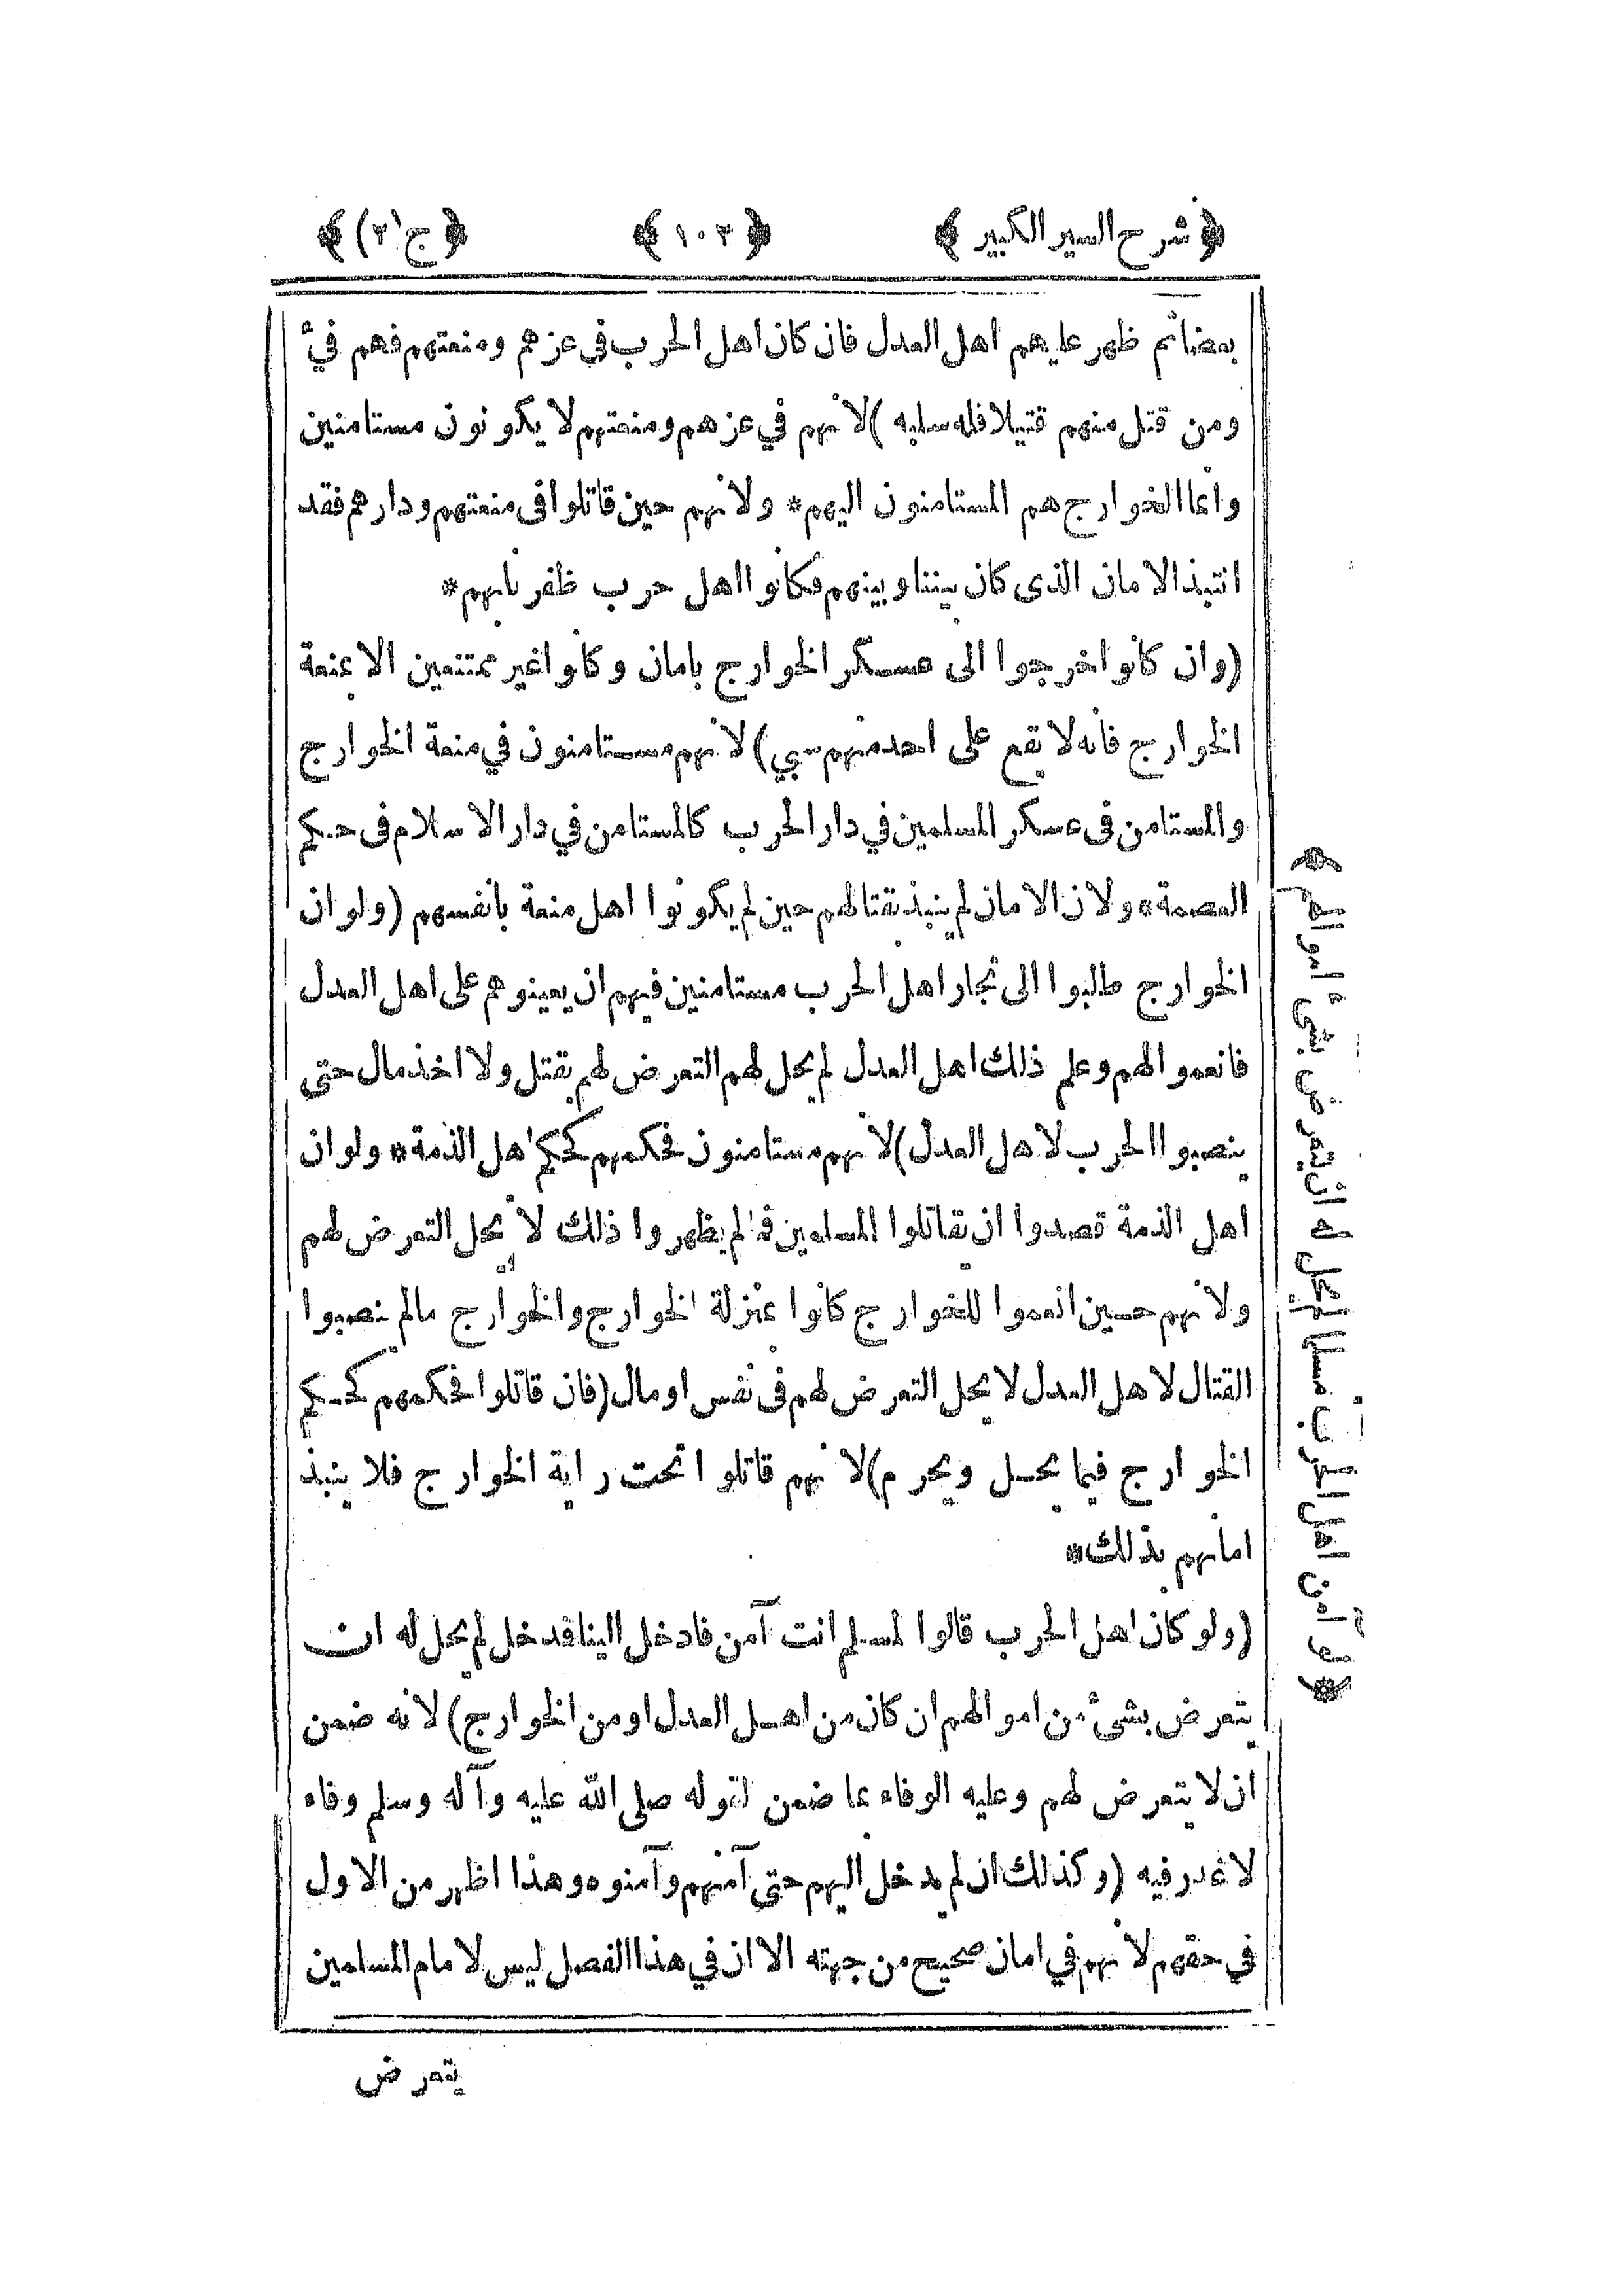 ﴿شرح السير الكبير﴾ ﴿١٠٣﴾ ﴿ج (٣)﴾
بعضا ثم ظهر عليهم اهل العدل فان كان اهل الحرب في عزهم ومنعتهم فهم فيء
ومن قتل منهم قتيلا فله سلبه) لانهم في عزهم ومنعتهم لا يكونون مستامنين
وانما الخوارج هم المستامنون اليهم* ولانهم حين قاتلوا فى منعتهم ودارهم فقد
انتبذ الامان الذى كان بيننا وبينهم فكانوا اهل حرب ظفرنا بهم*
(وان كانوا خرجوا الى عسكر الخوارج بامان وكانوا غير ممتنعين الا بمنعة
الخوارج فانه لا يقع على احد منهم سبي) لانهم مستامنون في منعة الخوارج
والمستامن فى عسكر المسلمين في دار الحرب كالمستامن في دار الاسلام فى حكم
العصمة* ولان الامان لم ينبذ بقتالهم حين لم يكونوا اهل منعة بانفسهم (ولو ان
الخوارج طلبوا الى تجار اهل الحرب مستامنين فيهم ان يعينوهم على اهل العدل
فانعموا لهم وعلم ذلك اهل العدل لم يحل لهم التعرض لهم بقتل ولا اخذ مال حتى
ينصبوا الحرب لاهل العدل) لانهم مستامنون فحكمهم كحكم اهل الذمة* ولو ان
اهل الذمة قصدوا ان يقاتلوا المسلمين فما لم يظهروا ذلك لا يحل التعرض لهم
ولانهم حين انعموا للخوارج كانوا بمنزلة الخوارج والخوارج مالم ينصبوا
القتال لاهل العدل لا يحل التعرض لهم فى نفس او مال (فان قاتلوا فحكمهم كحكم
الخوارج فيما يحل ويحرم) لانهم قاتلوا تحت راية الخوارج فلا ينبذ
امانهم بذلك*
(ولو كان اهل الحرب قالوا لمسلم انت آمن فادخل الينا فدخل لم يحل له ان
يتعرض بشئ من اموالهم ان كان من اهل العدل او من الخوارج) لانه ضمن
ان لا يتعرض لهم وعليه الوفاء بما ضمن لقوله صلى الله عليه وآله وسلم وفاء
لا غدر فيه (وكذلك ان لم يدخل اليهم حتى آمنهم وآمنوه وهذا اظهر من الاول
في حقهم لانهم في امان صحيح من جهته الا ان في هذا الفصل ليس لامام المسلمين
يتعرض
﴿لو آمن اهل الحرب مسلما لم يحل له ان يتعرض بشئ اموالهم﴾